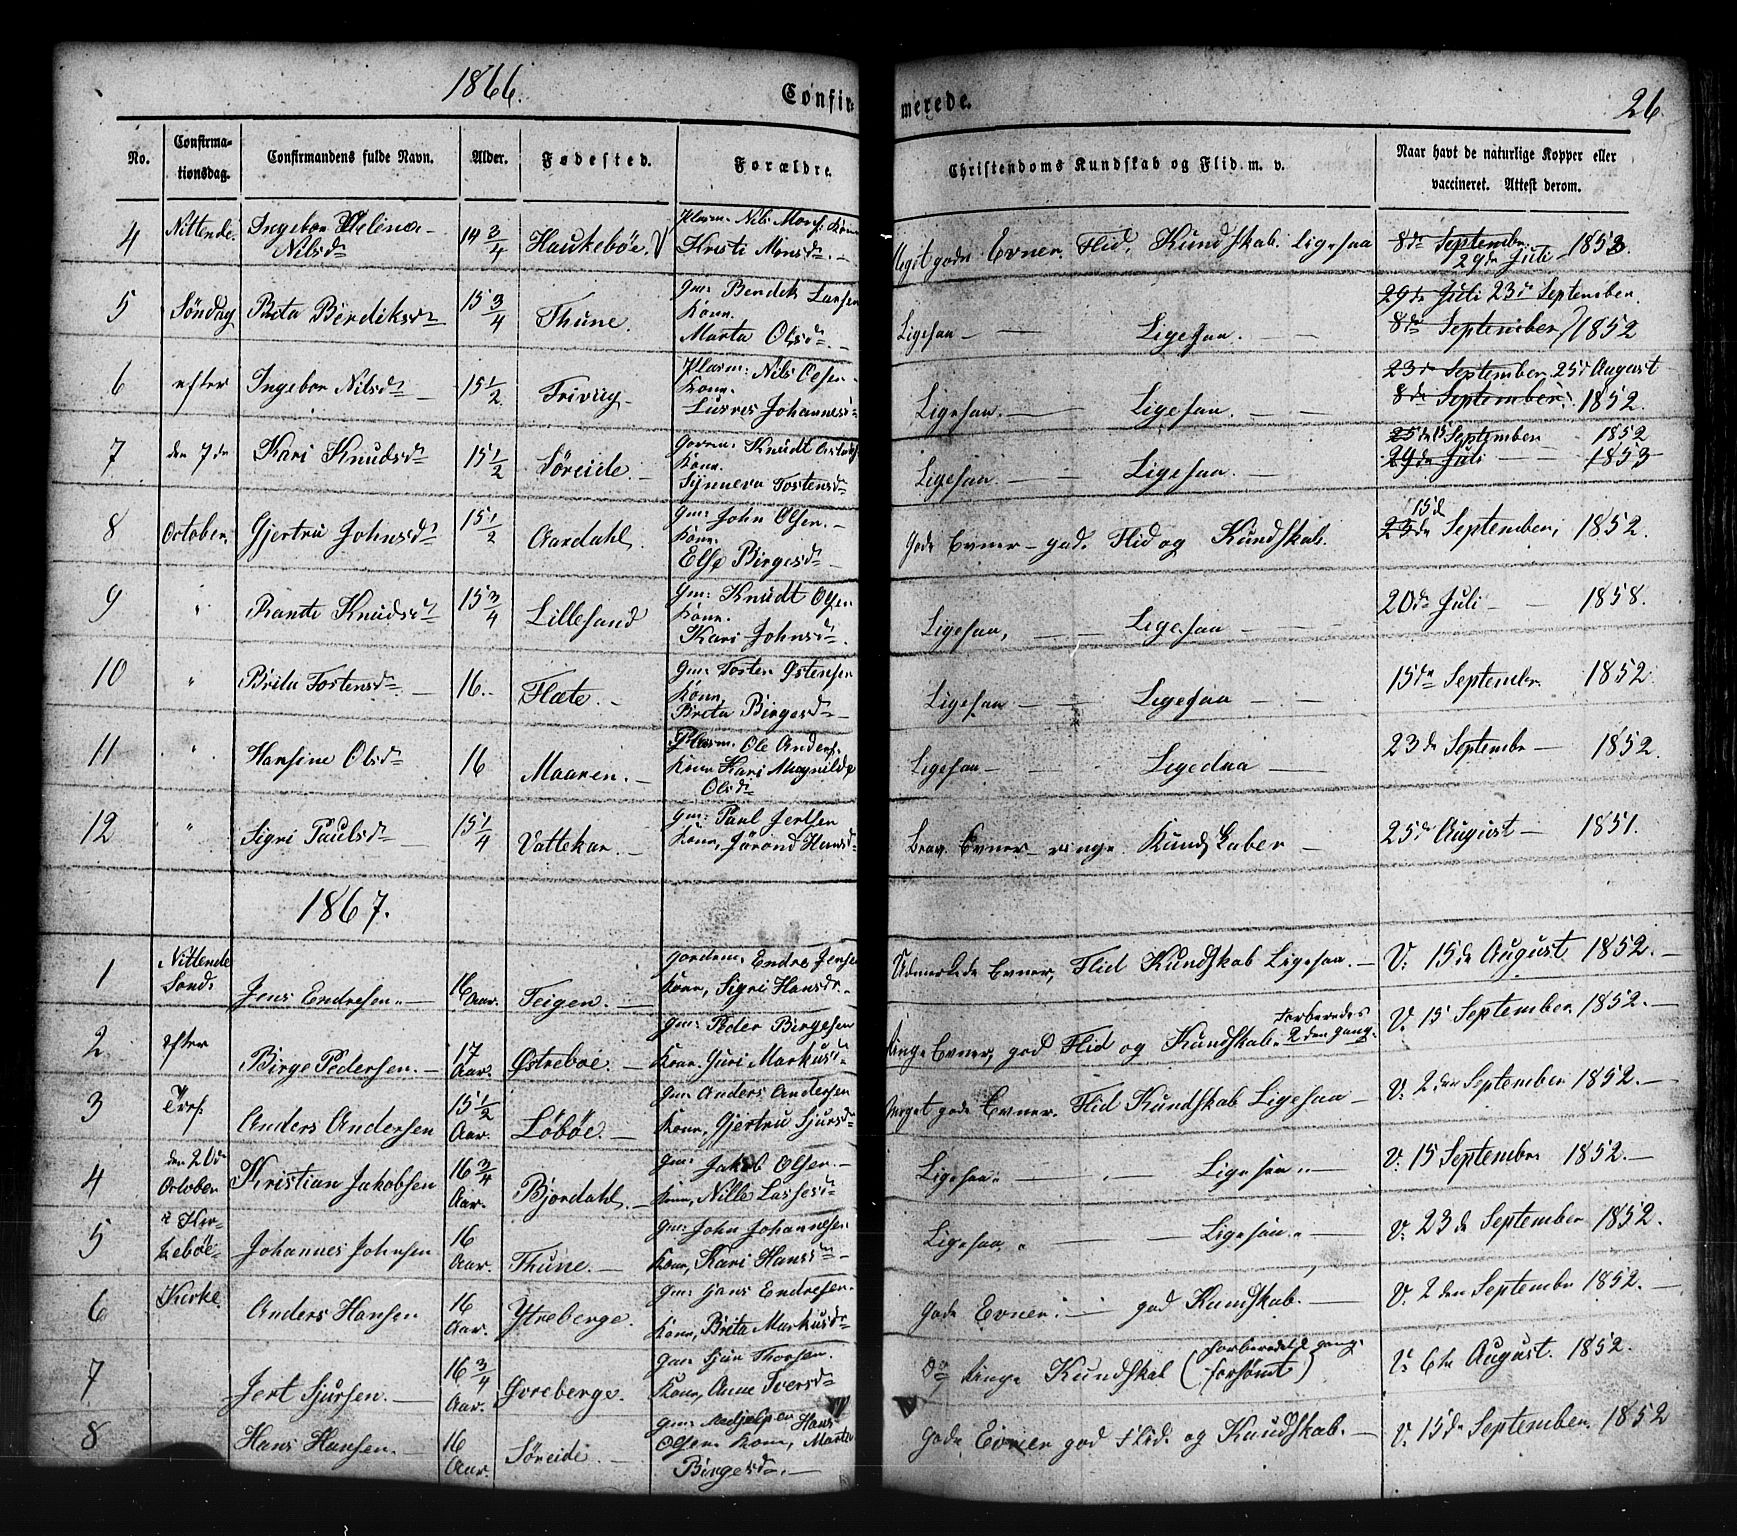 1866.
Confir-
merede.
26
No.
Confirma-
tionsdag.
Confirmandens fulde Navn.
Alder.
Fødested.
Forældre.
Christendoms Kundskab og Flid. m. v.
Naar havt de naturlige Kopper eller
vaccineret. Attest derom.
4 Nittende Ingebor Helene Nilsd. 14 3/4 Haukebøe. Plasm. Nils Mons. Kone Kristi Monsd. Meget gode Evner, Flid, Kundskab ligesaa 8de September 29de Juli 1853.
5 Søndag Brita Bendiksd 15 3/4 Thune. Gm: Bendik Larsen Kone. Marta Olsd. Ligesaa Ligesaa. 29de Juli 23de September 8de September 1852
6 efter Ingebor Nilsd 15 1/2 Plasm: Nils Olsen Kone. Johannesd Ligesaa. Ligesaa. 23de September 25de August 8de September. 1852.
7 den 7de Kari Knudsd 15 1/2 Søreide. Knudt Kone. Synneva Tostensd Ligesaa Ligesaa. 25de 15 September 1852 29de Juli 1853
8 October. Gjertru Johnsd 15 1/2 Aardahl. Gm: John Olsen. Kone. Else Birgesd Gode Evner god Flid og Kundskab. 15d 23de September 1852.
9 " Rante Knudsd 15 3/4 Lillesand Gm: Knudt Olsen Kone. Kari Johnsd. Ligesaa, Ligesaa 20de Juli 1858.
10 " Brita Tostensd. 16. Flæte. Gm: Tosten Ostensen Kone, Brita Birgesd Ligesaa Ligesaa 15de September 1852.
11 " Hansine Olsd 16 Maaren. Plasm. Ole Anders. Kone Kari Magnilde Olsd Ligesaa Ligedaa 23de Septembr 1852
12 " Sigri Paulsd 15 1/4 Vattekar. Gm: Paul Jertsen Kone, Jørond Hansd Brav. Evner ringe Kundskaber 25de August 1851.
1867.
1 Nittende Sønd: Jens Endresen. 16 Aar. Teigen. Gordm: Endre Jensen Kone, Sigri Hansd. Udmerkede Evner, Flid Kundskab Ligesaa. V. 15de August 1852.
2 efter Birge Pedersen. 17 Aar. Østrebøe. Gm: Peder Birgesen Kone Guri Markusd Ringe Evner, god Flid og Kundskab. Forberedes 2den gang. V. 15 September 1852.
3 Tref. Anders Andersen 15 1/2 Aar. Løbøe. Gm: Anders Andersen Kone, Gjertru Sjursd Meget gode Evner. Flid Kundskab Ligesaa V. 2den September 1852.
4 den 20de October Kristian Jakobsen 16 3/4 Aar. Bjordahl. Gm: Jakob Olsen Kone, Nille Lassesd Ligesaa. Ligesaa. V. 15 September 1852.
5 i Kirkebøe Johannes Johnsen 16 Aar. Thune. Gm: John Johannesen Kone, Kari Hansd Ligesaa. Ligesaa. V. 23de September 1852.
6 Kirke. Anders Hansen 16 Aar. Ytreberge. Gm: Hans Endresen. Kone, Brita Markusd Gode Evner. god Kundskab. V. 2den Septembr 1852.
7 Jert Sjursen. 16 3/4 Aar. Øvreberge. Gm: Sjur Thorsen. Kone, Anne Iversd Ringe Kundskab (forberedt 2d gang forsømt) V. 6te August. 1852.
8 Hans Hansen. 16 Aar. Søreide. Gm: Medhjelper Hans Olsen Kone, Marta Birgesd. Gode Evner god Flid. og Kundskab. V. 15de September. 1852